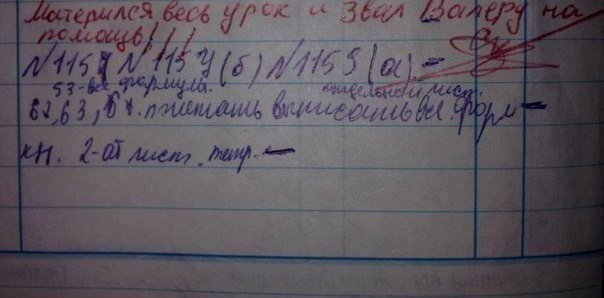 Матерился весь урок и звал Валеру на
помощь! ! !
№1154 №1157 (б) №1159 (а) –
53-все формулы. отдельный лист.
62, 63, выписать все форм –
2-ой лист. тетр. –